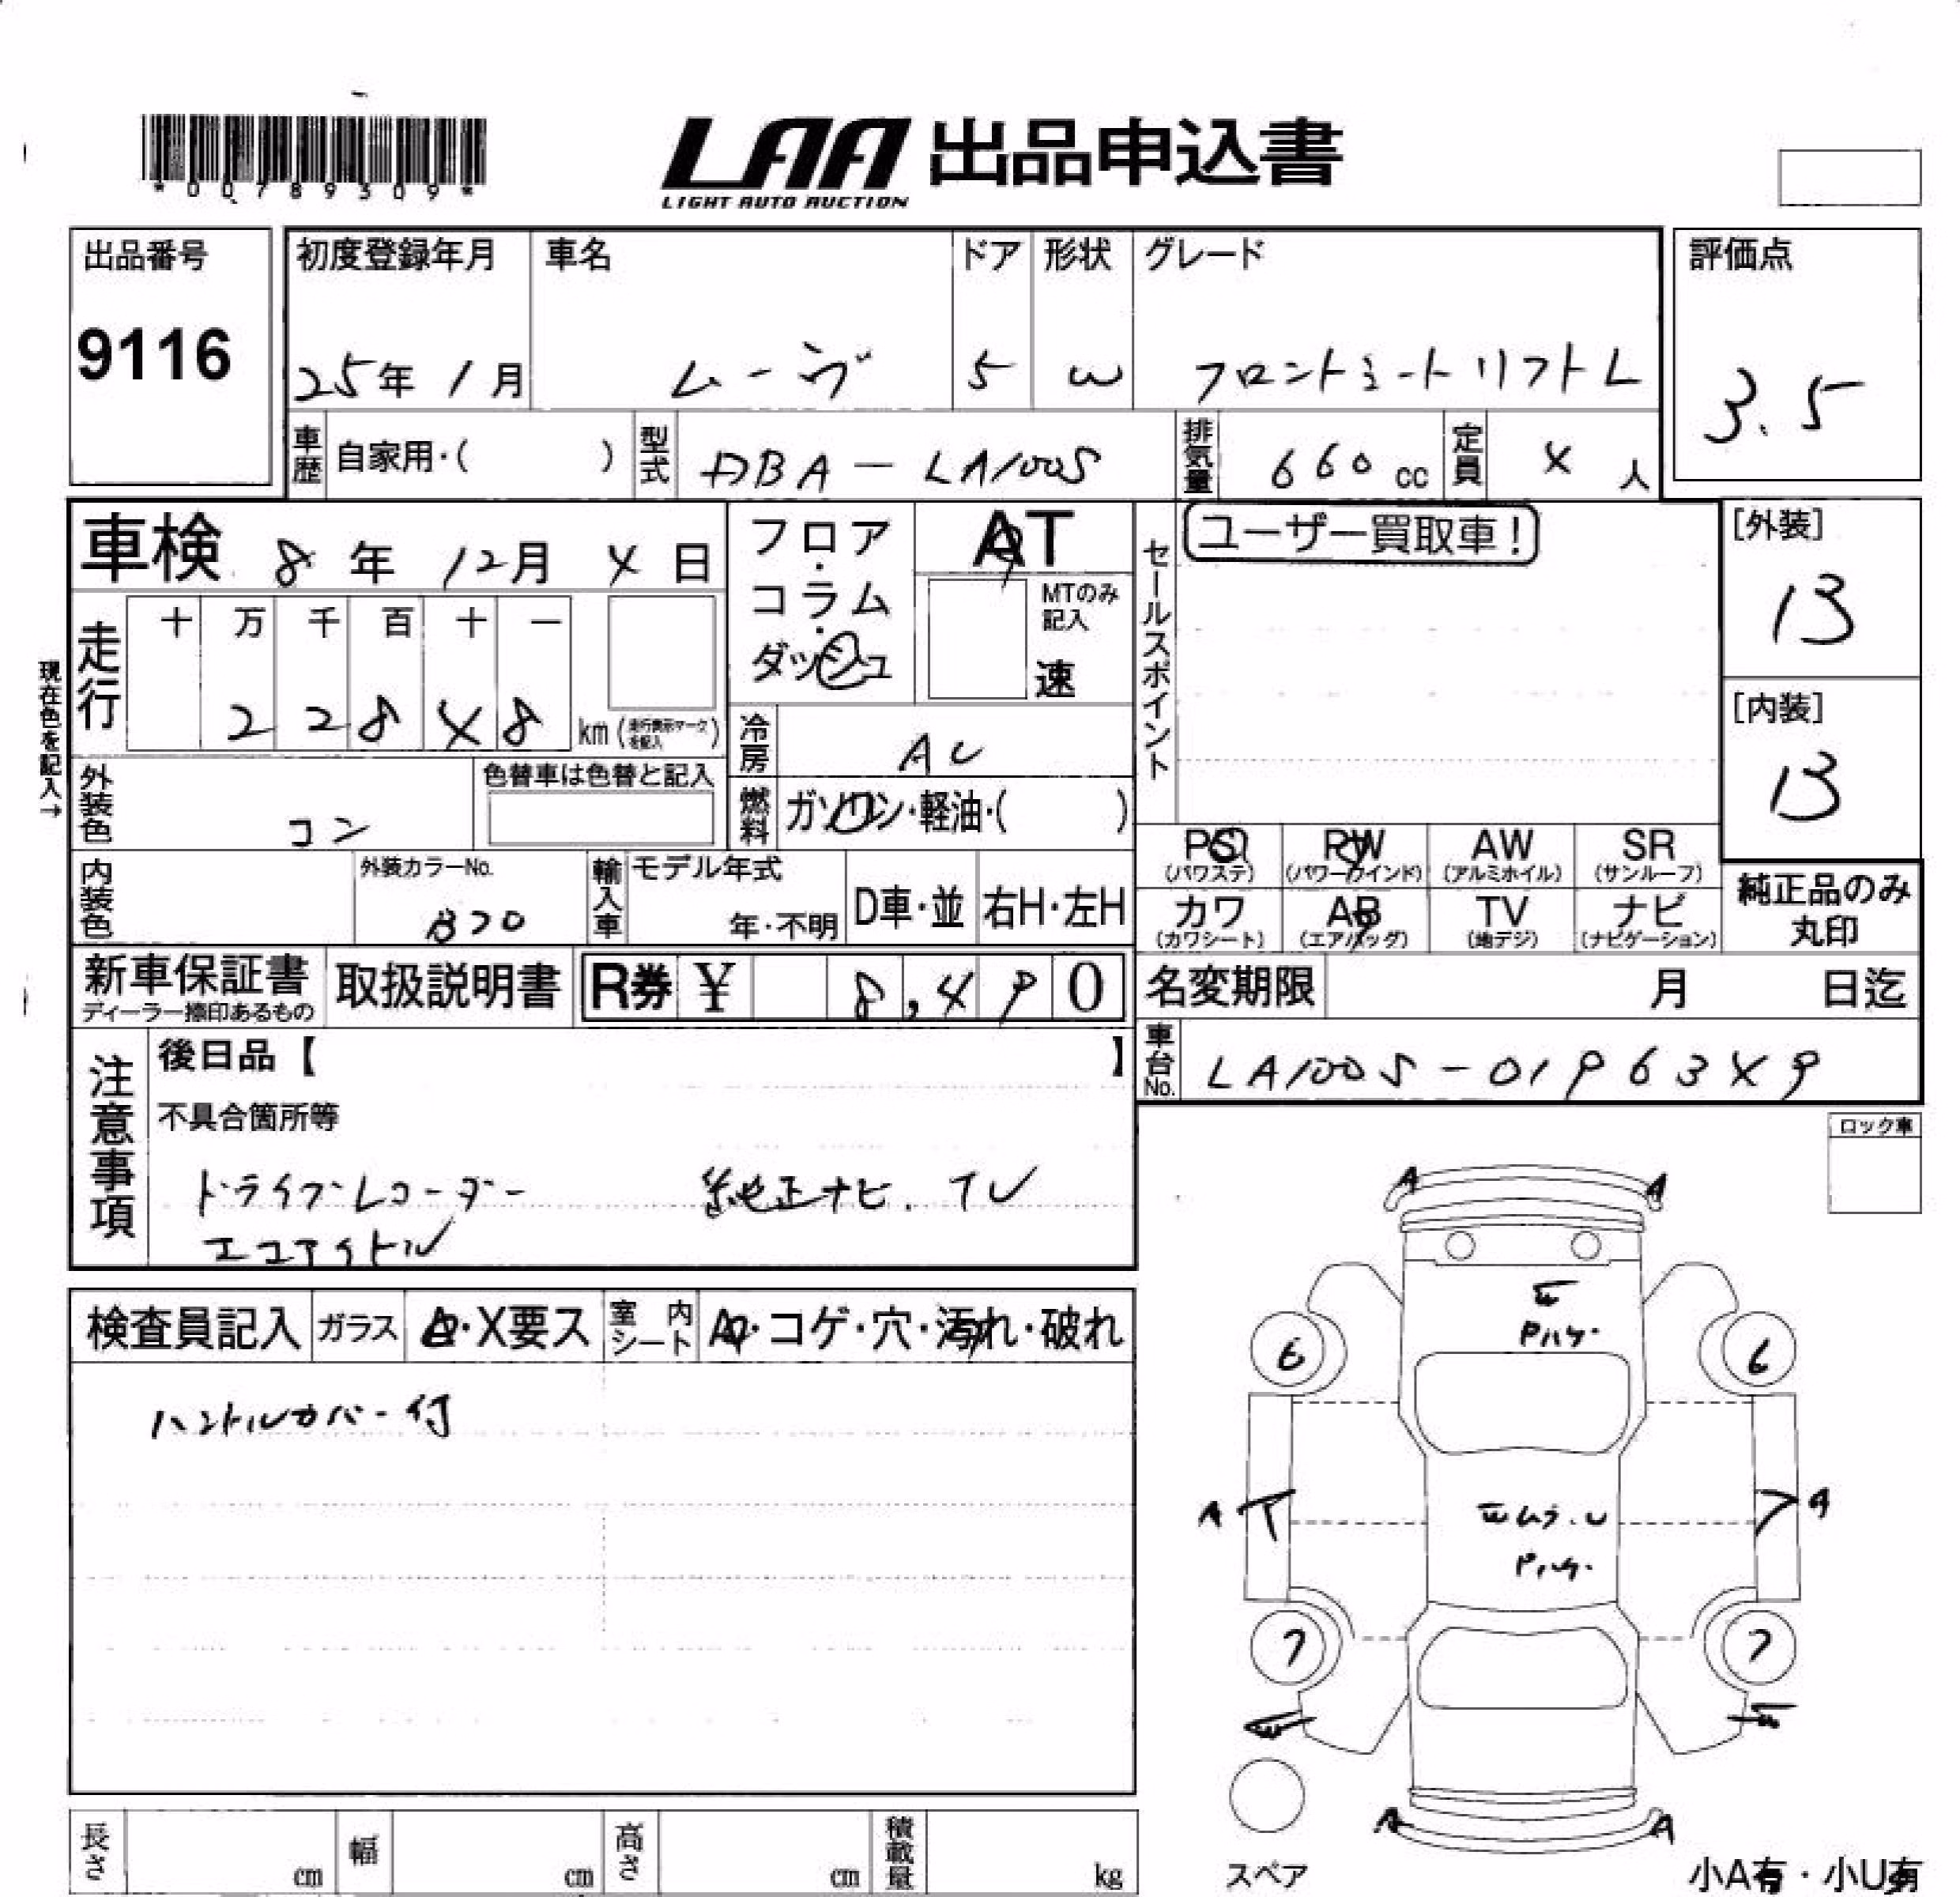 *00789309*
LAA 出品申込書
LIGHT AUTO AUCTION
出品番号
9116
初度登録年月
25年 1月
車名
ムーヴ
ドア
5
形状
W
グレード
フロントシートリフトL
評価点
3.5
車歴
自家用・( )
型式
DBA-LA100S
排気量
660 cc
定員
4 人
車検 8年 12月 4日
フロア・コラム・ダッシュ
AT
MTのみ記入
速
セールスポイント
ユーザー買取車!
[外装]
B
[内装]
B
現在色を記入→
走行
十 万 千 百 十 一
2 2 8 4 8
km (走行表示マークを記入)
冷房
AC
外装色
コン
色替車は色替と記入
燃料
ガソリン・軽油・( )
PS
(パワステ)
PW
(パワーウインド)
AW
(アルミホイル)
SR
(サンルーフ)
カワ
(カワシート)
AB
(エアバッグ)
TV
(地デジ)
ナビ
(ナビゲーション)
純正品のみ
丸印
内装色
外装カラーNo.
B70
輸入車
モデル年式
年・不明
D車・並
右H・左H
新車保証書
ディーラー捺印あるもの
取扱説明書
R券 ¥ 8,490
名変期限 月 日迄
車台No.
LA100S-0196349
注意事項
後日品【 】
不具合箇所等
ドライブレコーダー 純正ナビ.TV
エコアイドル
ロック車
検査員記入
ガラス
A・X要ス
室内シート
A・コゲ・穴・汚れ・破れ
ハンドルカバー付
A A
Pハゲ.
6 6
A A
ムラ.U
Pハゲ.
7 7
A A
スペア
小A有・小U有
長さ cm
幅 cm
高さ cm
積載量 kg